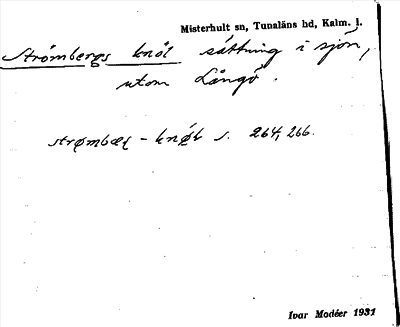 Misterhult sn, Tunaläns hd, Kalm. l.
Strömbergs knöl sättning i sjön,
utom Långö.
strømbæɽ - knøl s. 264, 266.
Ivar Modéer 1931